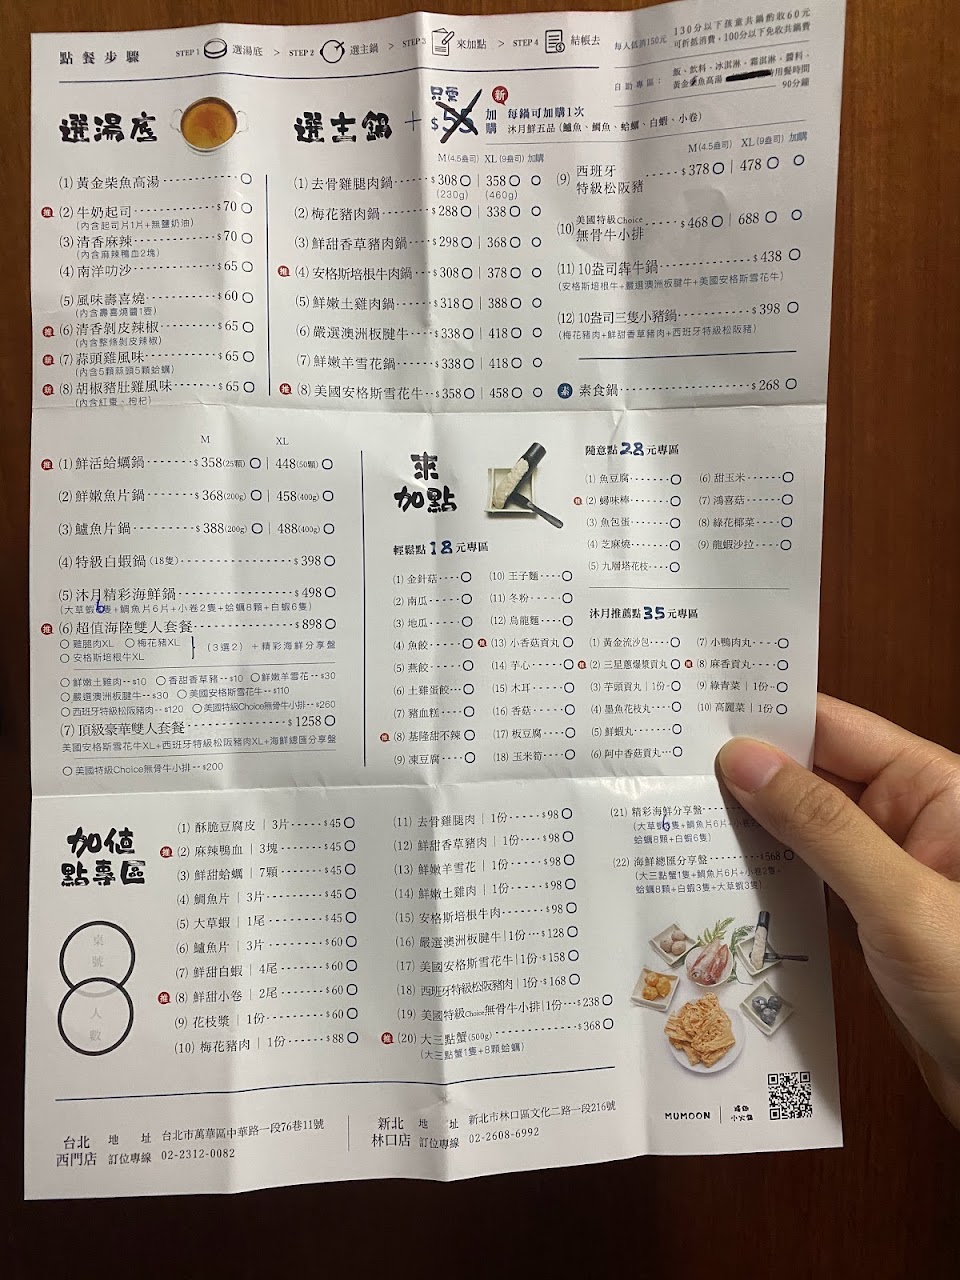 點餐步驟 STEP 1 選湯底 > STEP 2 選主鍋 > STEP 3 來加點 > STEP 4 結帳去
每人低消150元 130分以下孩童共鍋酌收60元
可折抵消費，100分以下免收共鍋費
自助專區： 飯、飲料、冰淇淋、霜淇淋、醬料、
黃金柴魚高湯 用餐時間
90分鐘
選湯底
(1) 黃金柴魚高湯
推 (2) 牛奶起司 $70
(內含起司片1片+無鹽奶油)
(3) 清香麻辣 $70
(內含麻辣鴨血2塊)
(4) 南洋叻沙 $65
(5) 風味壽喜燒 $60
(內含壽喜燒醬1壺)
推 (6) 清香剝皮辣椒 $65
(內含整條剝皮辣椒)
(7) 蒜頭雞風味 $65
(內含5顆蒜頭5顆蛤蠣)
(8) 胡椒豬肚雞風味 $65
(內含紅棗、枸杞)
選主鍋 + $55 加購
新 每鍋可加購1次
沐月鮮五品 (鱸魚、鯛魚、蛤蠣、白蝦、小卷)
M (4.5盎司) XL (9盎司) 加購
(1) 去骨雞腿肉鍋 $308 358
(230g) (460g)
(2) 梅花豬肉鍋 $288 338
(3) 鮮甜香草豬肉鍋 $298 368
推 (4) 安格斯培根牛肉鍋 $308 378
(5) 鮮嫩土雞肉鍋 $318 388
(6) 嚴選澳洲板腱牛 $338 418
(7) 鮮嫩羊雪花鍋 $338 418
推 (8) 美國安格斯雪花牛 $358 458
M (4.5盎司) XL (9盎司) 加購
(9) 西班牙
特級松阪豬 $378 478
(10) 美國特級Choice
無骨牛小排 $468 688
(11) 10盎司犇牛鍋 $438
(安格斯培根牛+嚴選澳洲板腱牛+美國安格斯雪花牛)
(12) 10盎司三隻小豬鍋 $398
(梅花豬肉+鮮甜香草豬肉+西班牙特級松阪豬)
素 素食鍋 $268
M XL
推 (1) 鮮活蛤蠣鍋 $358(25顆) 448(50顆)
(2) 鮮嫩魚片鍋 $368(200g) 458(400g)
(3) 鱸魚片鍋 $388(200g) 488(400g)
(4) 特級白蝦鍋 (18隻) $398
(5) 沐月精彩海鮮鍋 $498
(大草蝦6隻+鯛魚片6片+小卷2隻+蛤蠣8顆+白蝦6隻)
推 (6) 超值海陸雙人套餐 $898
雞腿肉XL 梅花豬XL
安格斯培根牛XL
(3選2) +精彩海鮮分享盤
鮮嫩土雞肉--$10 香甜香草豬--$10 鮮嫩羊雪花--$30
嚴選澳洲板腱牛--$30 美國安格斯雪花牛--$110
西班牙特級松阪豬肉--$120 美國特級Choice無骨牛小排--$260
(7) 頂級豪華雙人套餐 $1258
美國安格斯雪花牛XL+西班牙特級松阪豬肉XL+海鮮總匯分享盤
美國特級Choice無骨牛小排--$200
來加點
輕鬆點 18 元專區
(1) 金針菇
(2) 南瓜
(3) 地瓜
(4) 魚餃
(5) 燕餃
(6) 土雞蛋餃
(7) 豬血糕
推 (8) 基隆甜不辣
(9) 凍豆腐
(10) 王子麵
(11) 冬粉
(12) 烏龍麵
推 (13) 小香菇貢丸
(14) 芋心
(15) 木耳
(16) 香菇
(17) 板豆腐
(18) 玉米筍
隨意點 28 元專區
(1) 魚豆腐
推 (2) 蟳味棒
(3) 魚包蛋
(4) 芝麻燒
(5) 九層塔花枝
(6) 甜玉米
(7) 鴻喜菇
(8) 綠花椰菜
(9) 龍蝦沙拉
沐月推薦點 35 元專區
(1) 黃金流沙包
推 (2) 三星蔥爆漿貢丸
(3) 芋頭貢丸｜1份
(4) 墨魚花枝丸
(5) 鮮蝦丸
(6) 阿中香菇貢丸
(7) 小鴨肉丸
推 (8) 麻香貢丸
(9) 綠青菜｜1份
(10) 高麗菜｜1份
加值
點專區
桌號
人數
(1) 酥脆豆腐皮｜3片 $45
推 (2) 麻辣鴨血｜3塊 $45
(3) 鮮甜蛤蠣｜7顆 $45
(4) 鯛魚片｜3片 $45
(5) 大草蝦｜1尾 $45
(6) 鱸魚片｜3片 $60
(7) 鮮甜白蝦｜4尾 $60
推 (8) 鮮甜小卷｜2尾 $60
(9) 花枝漿｜1份 $60
(10) 梅花豬肉｜1份 $88
(11) 去骨雞腿肉｜1份 $98
(12) 鮮甜香草豬肉｜1份 $98
(13) 鮮嫩羊雪花｜1份 $98
(14) 鮮嫩土雞肉｜1份 $98
(15) 安格斯培根牛肉 $98
(16) 嚴選澳洲板腱牛｜1份 $128
(17) 美國安格斯雪花牛｜1份 $158
(18) 西班牙特級松阪豬肉｜1份 $168
(19) 美國特級Choice無骨牛小排｜1份 $238
推 (20) 大三點蟹(500g) $368
(大三點蟹1隻+8顆蛤蠣)
(21) 精彩海鮮分享盤
(大草蝦6隻+鯛魚片6片+小卷
蛤蠣8顆+白蝦6隻)
(22) 海鮮總匯分享盤 $568
(大三點蟹1隻+鯛魚片6片+小卷2隻+
蛤蠣8顆+白蝦3隻+大草蝦3隻)
MUMOON
台北
西門店
地 址 台北市萬華區中華路一段76巷11號
訂位專線 02-2312-0082
新北
林口店
地 址 新北市林口區文化二路一段216號
訂位專線 02-2608-6992